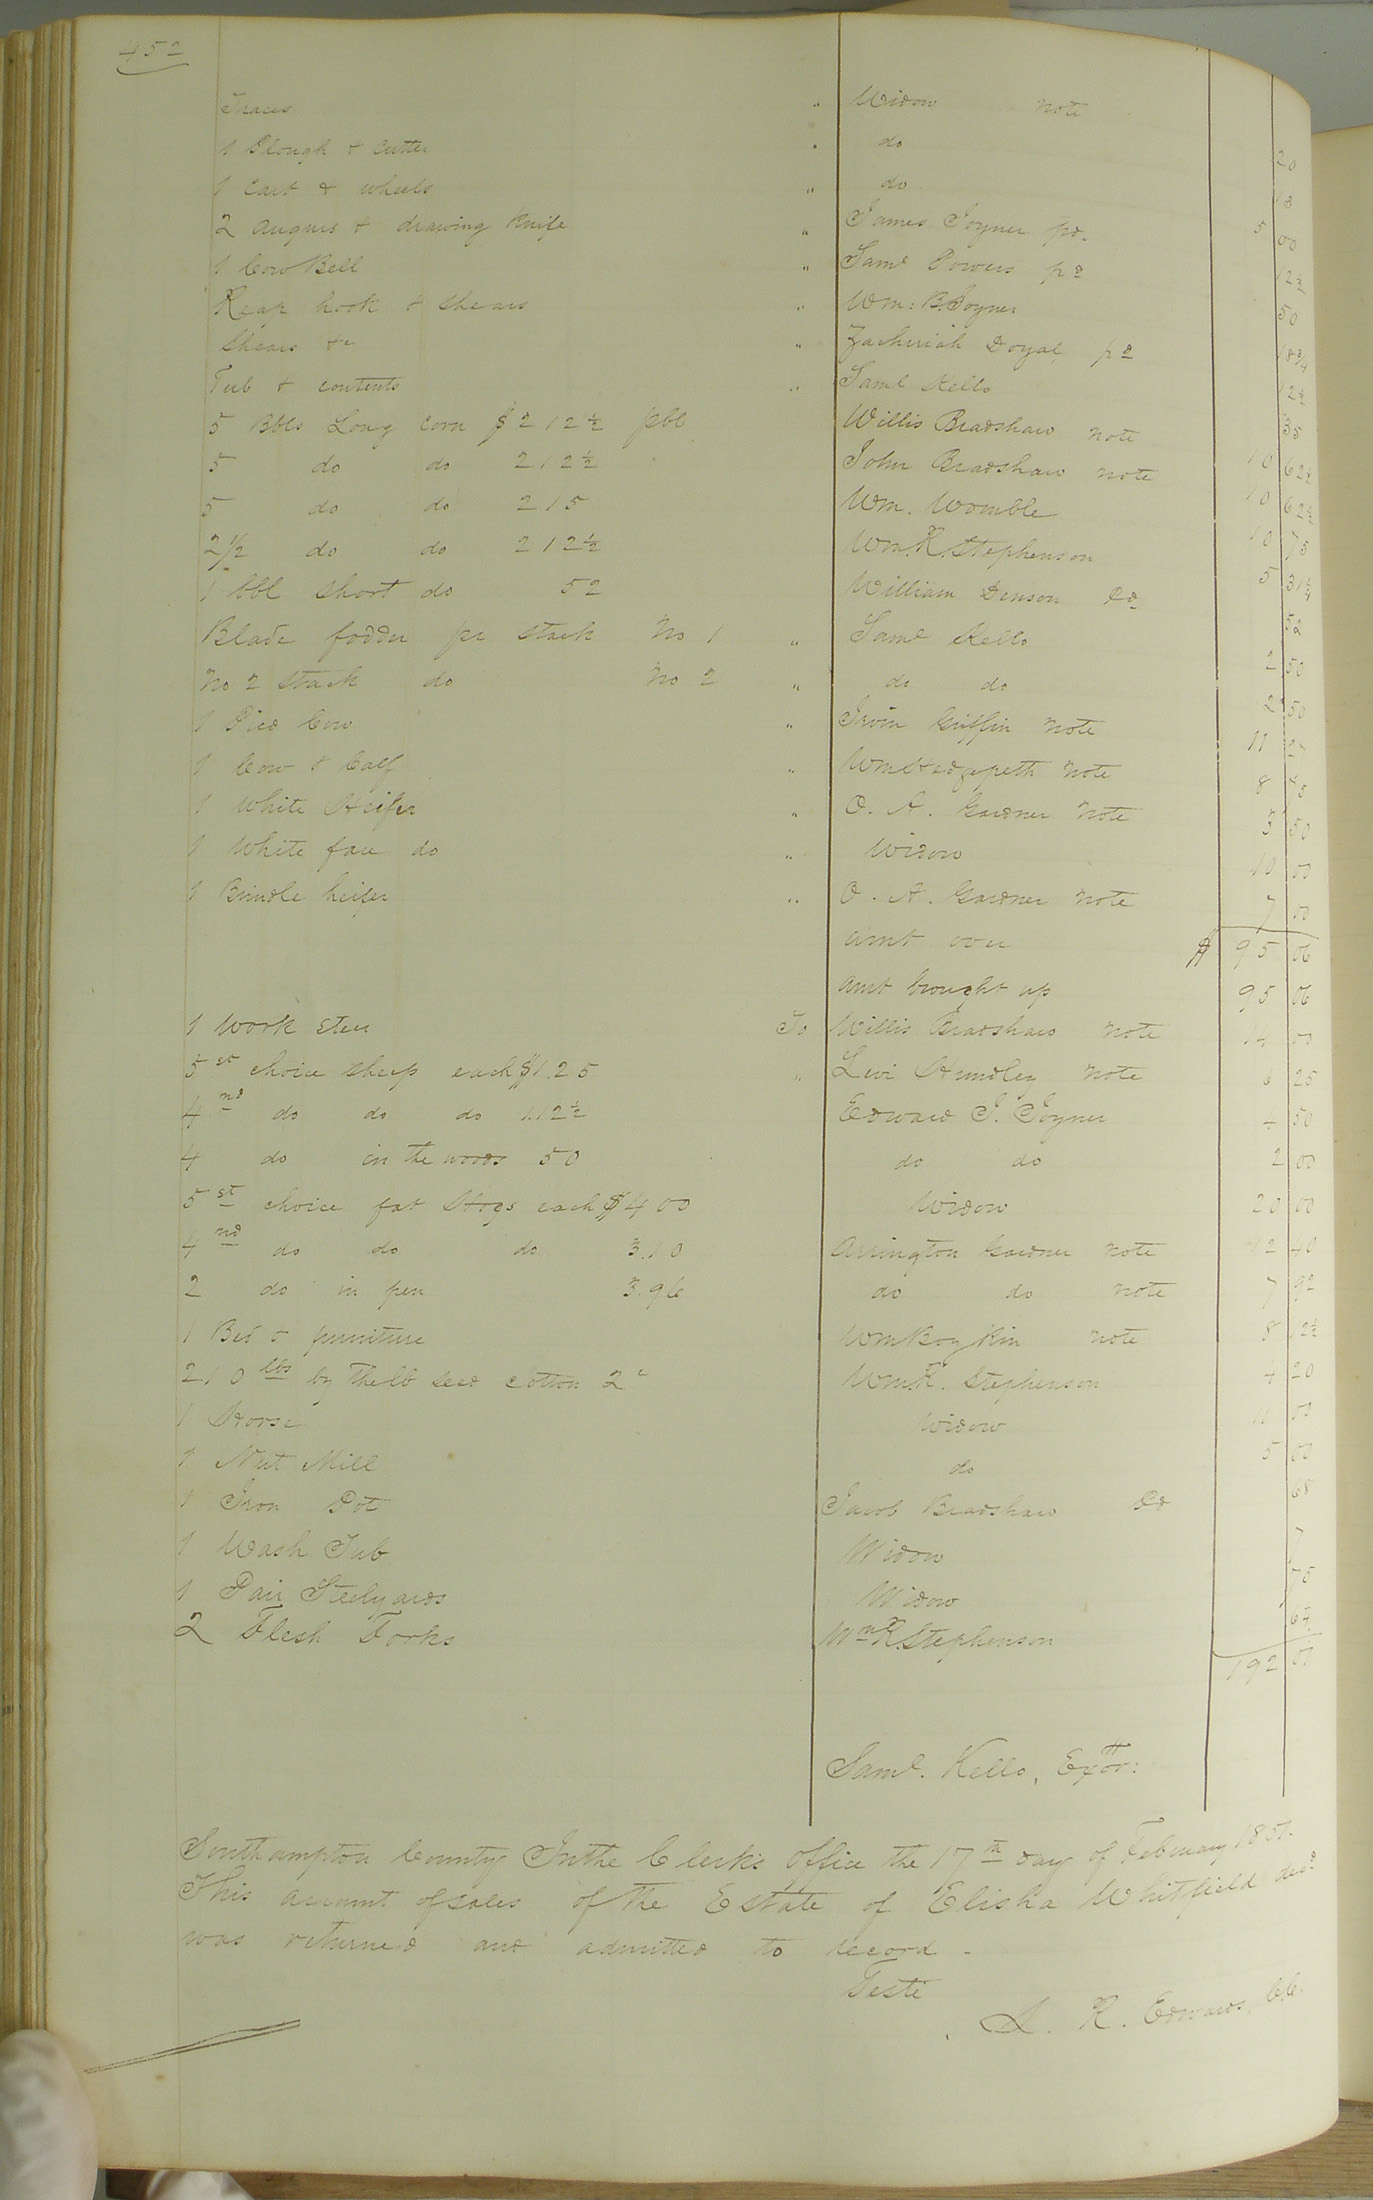 452
Traces " Widow note 20
1 Plough & Cutter " do 18
1 Cart & wheels " do 5 00
2 augurs & drawing Knife " James Joyner pd. 12½
1 Cow Bell " Saml Powers pd 50
Reap hook & shears " Wm: B. Joyner 18¾
Shears &c " Zacheriah Doyal pd 12½
Tub & contents " Saml Kello 35
5 Bbls Long corn $2 12½ pbl Willis Bradshaw note 10 62½
5 do do 2 12½ John Bradshaw note 10 62½
5 do do 2 15 Wm. Womble 10 75
2½ do do 2 12½ Wm. R. Stephenson 5 31¼
1 bbl short do 52 William Denson Pd 52
Blade fodder pr stack No 1 " Saml Kello 2 50
No 2 stack do No 2 " do do 2 50
1 Pied Cow " Irvin Griffin note 11
1 Cow & Calf " Wm Hedgpeth note 8
1 White Heifer " O. A. Gardner note 3 50
1 White face do " Widow 10 00
1 Brindle heifer " O. A. Gardner note 7 00
amt over $ 95 06
amt brought up 95 06
1 Work Steer To Willis Bradshaw note 14 00
5 st choice sheep each $1.25 " Levi Hundley note 6 25
4 nd do do do 1.12½ Edward J. Joyner 4 50
4 do in the woods 50 do do 2 00
5 st choice fat Hogs each $4 00 Widow 20 00
4 nd do do do 3.10 Arrington Gardner note 12 40
2 do in pen 3.96 do do note 7 92
1 Bed & furniture Wm Boykin note 8 12½
210 lbs by the lb seed cotton 2c Wm. R. Stephenson 4 20
1 Horse Widow 11 00
1 Nut Mill do 5 00
1 Iron Pot Jacob Bradshaw Pd 68
1 Wash Tub Widow 7
1 Pair Steelyards Widow 75
2 Flesh Forks Wm R. Stephenson 6¼
192 01
Saml. Kello, Exor:
Southampton County In the Clerk's Office the 17th day of February 1851.
This account of sales of the Estate of Elisha Whitfield decd
was returned and admitted to record -
Teste
L. R. Edwards, C.C.